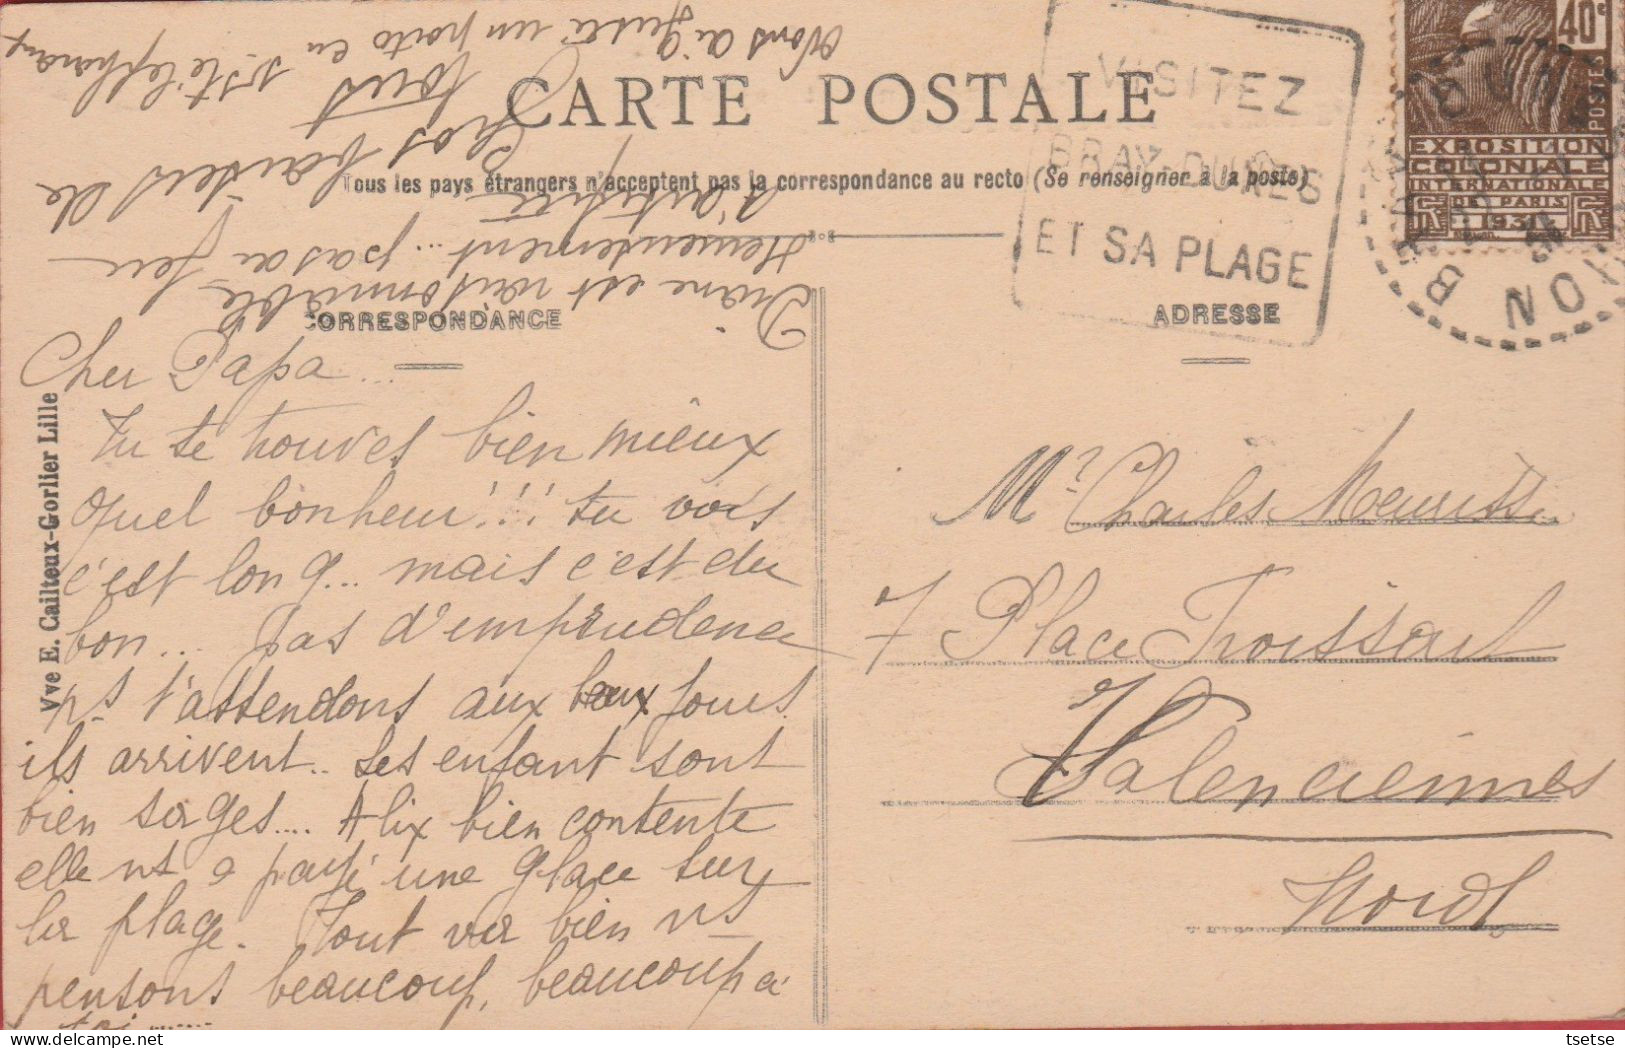 CARTE POSTALE
Tous les pays étrangers n'acceptent pas la correspondance au recto (Se renseigner à la poste)
VISITEZ
BRAY-DUNES
ET SA PLAGE
40c
POSTES
EXPOSITION
COLONIALE
INTERNATIONALE
DE PARIS
1931
BRAY DUNES
NORD
CORRESPONDANCE
ADRESSE
Vve E. Cailteux-Gorlier Lille
Cher Papa...
Tu te trouves bien mieux
quel bonheur!!! tu vois
c'est long... mais c'est du
bon... pas d'emprudence
ns t'attendons aux beaux jours
ils arrivent.. Les enfant sont
bien sages.... Alix bien contente
elle ns a payé une glace sur
la plage. Tout va bien ns
pensons beaucoup, beaucoup à
toi.......
Diane est raisonnable
Heureusement... pas au feu
d'artifice
Gros baisers de
tous
Mr Charles Meurisse
7 Place Froissart
Valenciennes
Nord
tsetse